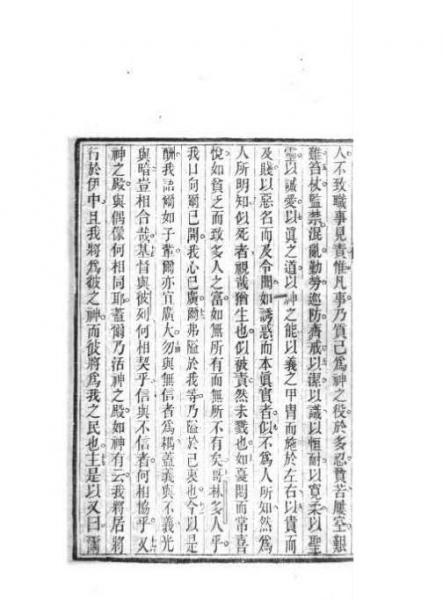 人不致職事見責惟凡事乃質己為神之役於多忍貧苦屢空艱
難笞杖監禁混亂勤勞巡防齋戒以潔以識以恒耐以寬柔以聖
靈以誠愛以真之道以神之能以義之甲冑而施於左右以貴而
及賤以惡名而及令聞如誘惑而本真實者似不為人所知然為
人所明知似死者視哉猶生也似被責然未戮也如憂悶而常喜
悅如貧乏而致多人之富如無所有而無所不有矣哥林多人乎
我口向爾已開我心已廣爾弗隘於我等乃隘於己衷也今以是
酬我語爾如子輩爾亦宜廣大勿與無信者為耦蓋義與不義光
與暗豈相合哉基督與彼列何相契乎信與不信者何相協乎又
神之殿與偶像何相同耶蓋爾乃活神之殿如神有云我將居將
行於伊中且我將為彼之神而彼將為我之民也主是以又曰